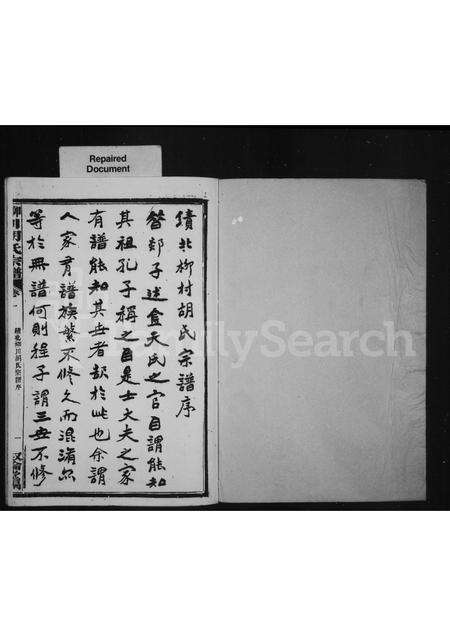 Repaired
Document
績北柳村胡氏宗譜序
昔郯子述食天氏之官自謂能知
其祖孔子稱之自是士大夫之家
有譜能知其世者起於此也余謂
人家有譜族繁不修久而混淆
等於無譜何則程子謂三世不修
柳川胡氏宗譜
卷一
績北柳川胡氏宗譜序
一
FamilySearch